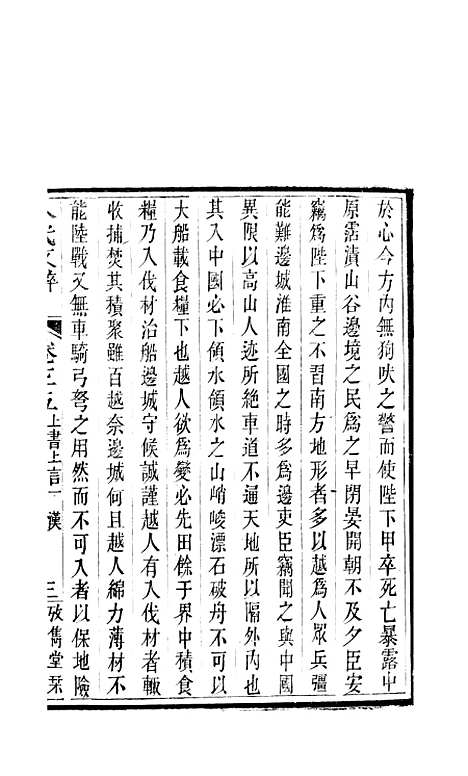 於心今方內無狗吠之警而使陛下甲卒死亡暴露中
原霑漬山谷邊境之民爲之早閉晏開朝不及夕臣安
竊爲陛下重之不習南方地形者多以越爲人眾兵彊
能難邊城淮南全國之時多爲邊吏臣竊聞之與中國
異限以高山人迹所絶車道不通天地所以隔外內也
其入中國必下領水領水之山峭峻漂石破舟不可以
大船載食糧下也越人欲爲變必先田餘于界中積食
糧乃入伐材治船邊城守候誠謹越人有入伐材者輒
收捕焚其積聚雖百越奈邊城何且越人綿力薄材不
能陸戰又無車騎弓弩之用然而不可入者以保地險
代文粹 卷三五 上書上言一 漢 三 攷雋堂栞